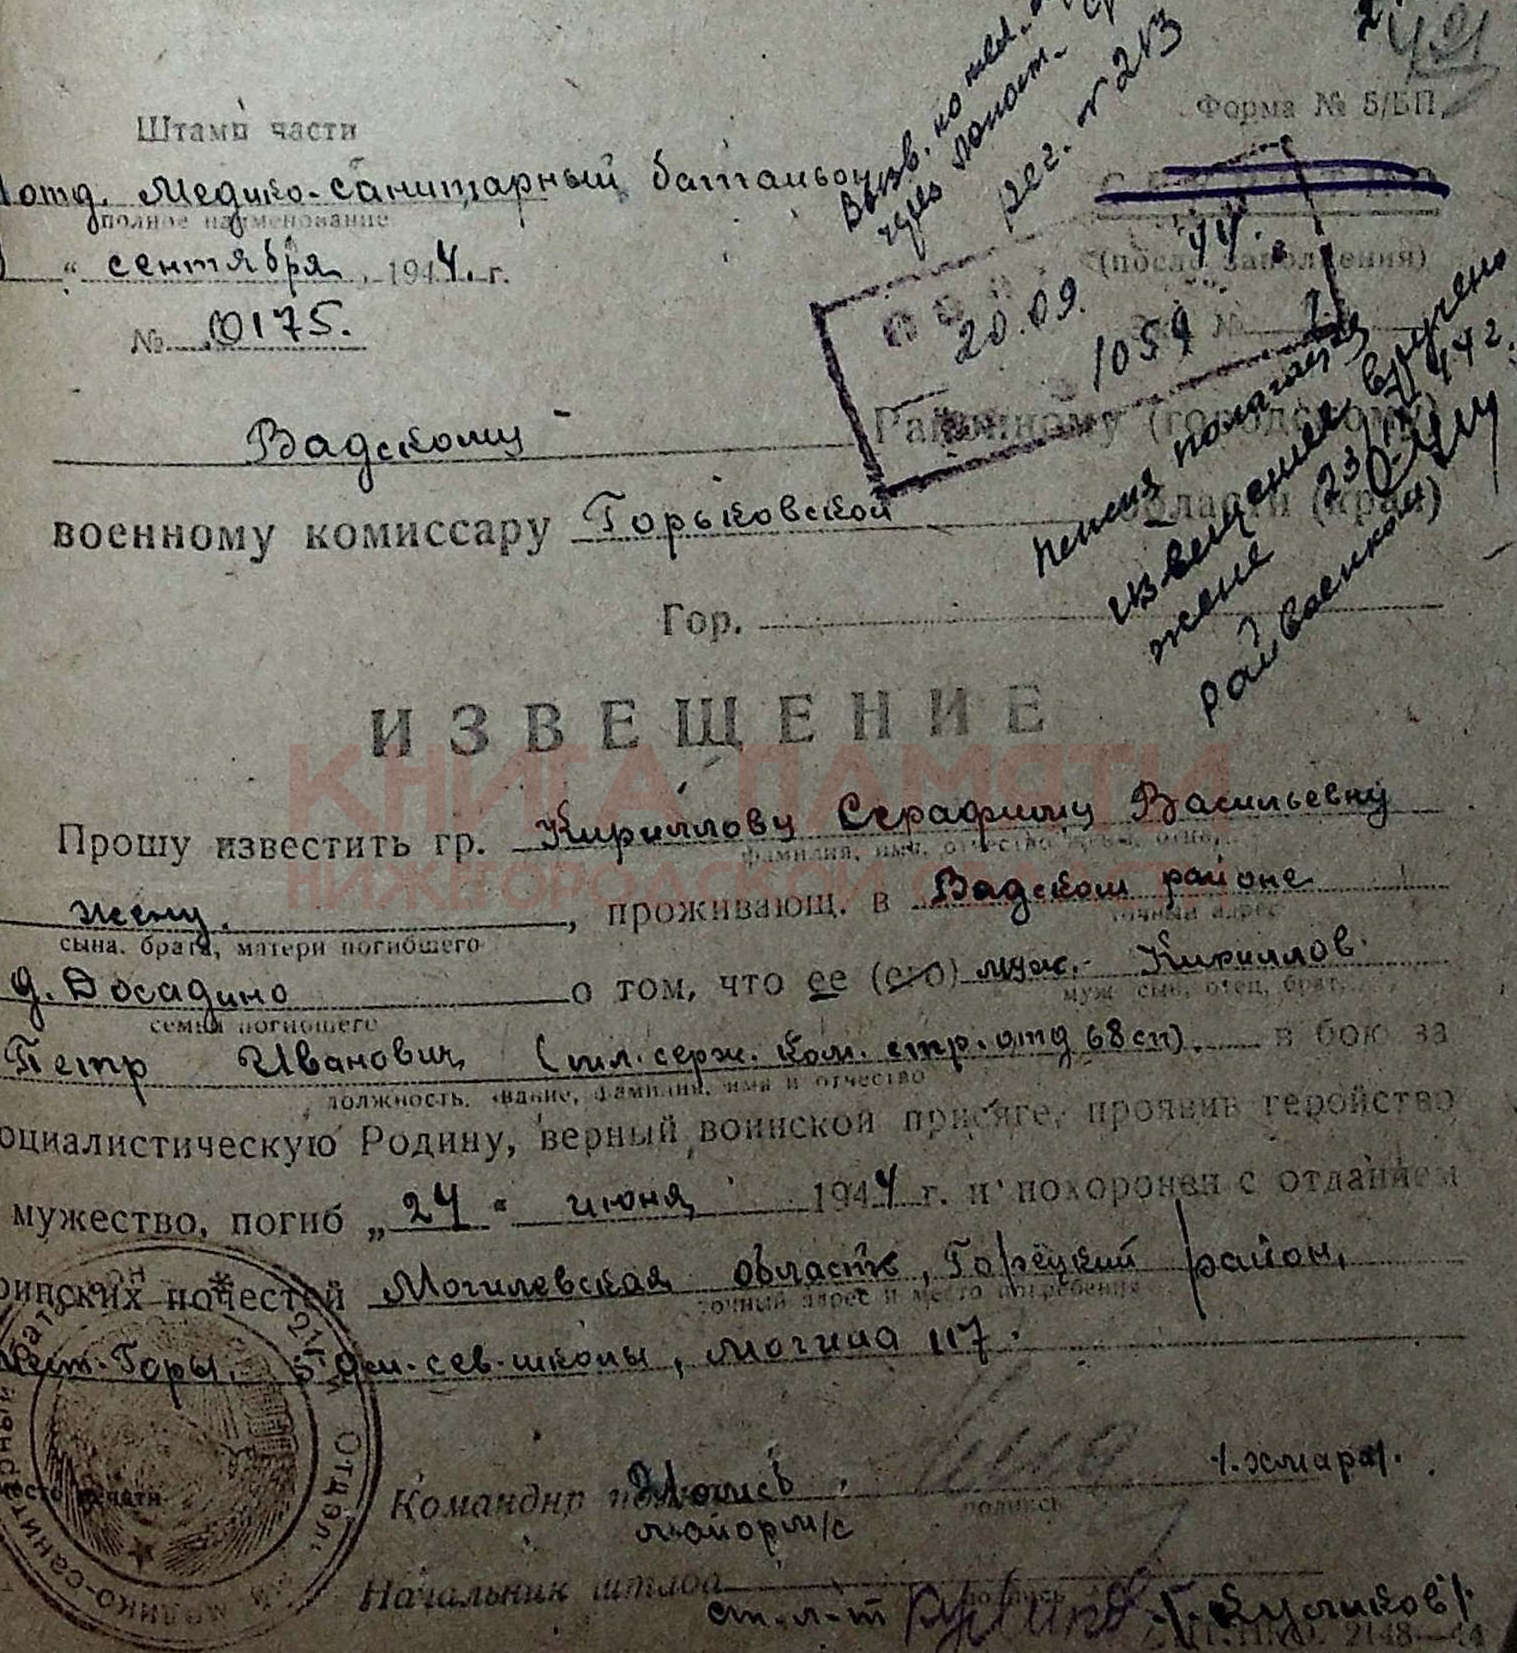 2
Вызв. по тел.
рег. № 213
Форма № 5/БП
Штамп части
отд. Медико-санитарный батальон
полное наименование
(после заполнения)
„ сентября 1944 г.
20.09. 44
№ 0175.
1059
№
Вадскому Районному (городскому)
военному комиссару Горьковской области (края)
Гор.
извещение вручено
жене 23/
райвоенком
ИЗВЕЩЕНИЕ
КНИГА ПАМЯТИ
НИЖЕГОРОДСКОЙ
Прошу известить гр. Кириллову Серафиму Васильевну
фамилия, имя, отчество
жену. , проживающ. в Вадском районе
сына, брата, матери погибшего
точный адрес
д. Досадино о том, что ее (его) муж. - Кириллов
семьи погибшего
муж, сын, отец, брат,
Петр Иванович (мл. серж. ком. стр. отд 68 сп). в бою за
должность, звание, фамилия, имя и отчество
оциалистическую Родину, верный воинской присяге, проявив геройство
мужество, погиб „24" июня 1944 г. и похоронен с отданием
оинских почестей Могилевская область, Горецкий район,
точный адрес и место погребения
мест. Горы, сев. школы, могила 117.
Место печати
Командир /. Хмара/.
подпись
майор м/с
Начальник штаба
подпись
ст. л-т /. Куликов/.
2148—44